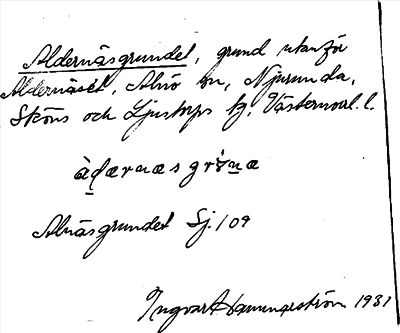 Aldernäsgrundet, grund utanför
Aldernäset, Alnö sn, Njurunda,
Sköns och Ljustorps tg, Västernorl. l.
Alnäsgrundet Sj. 109
Ingvar Hammarström 1931